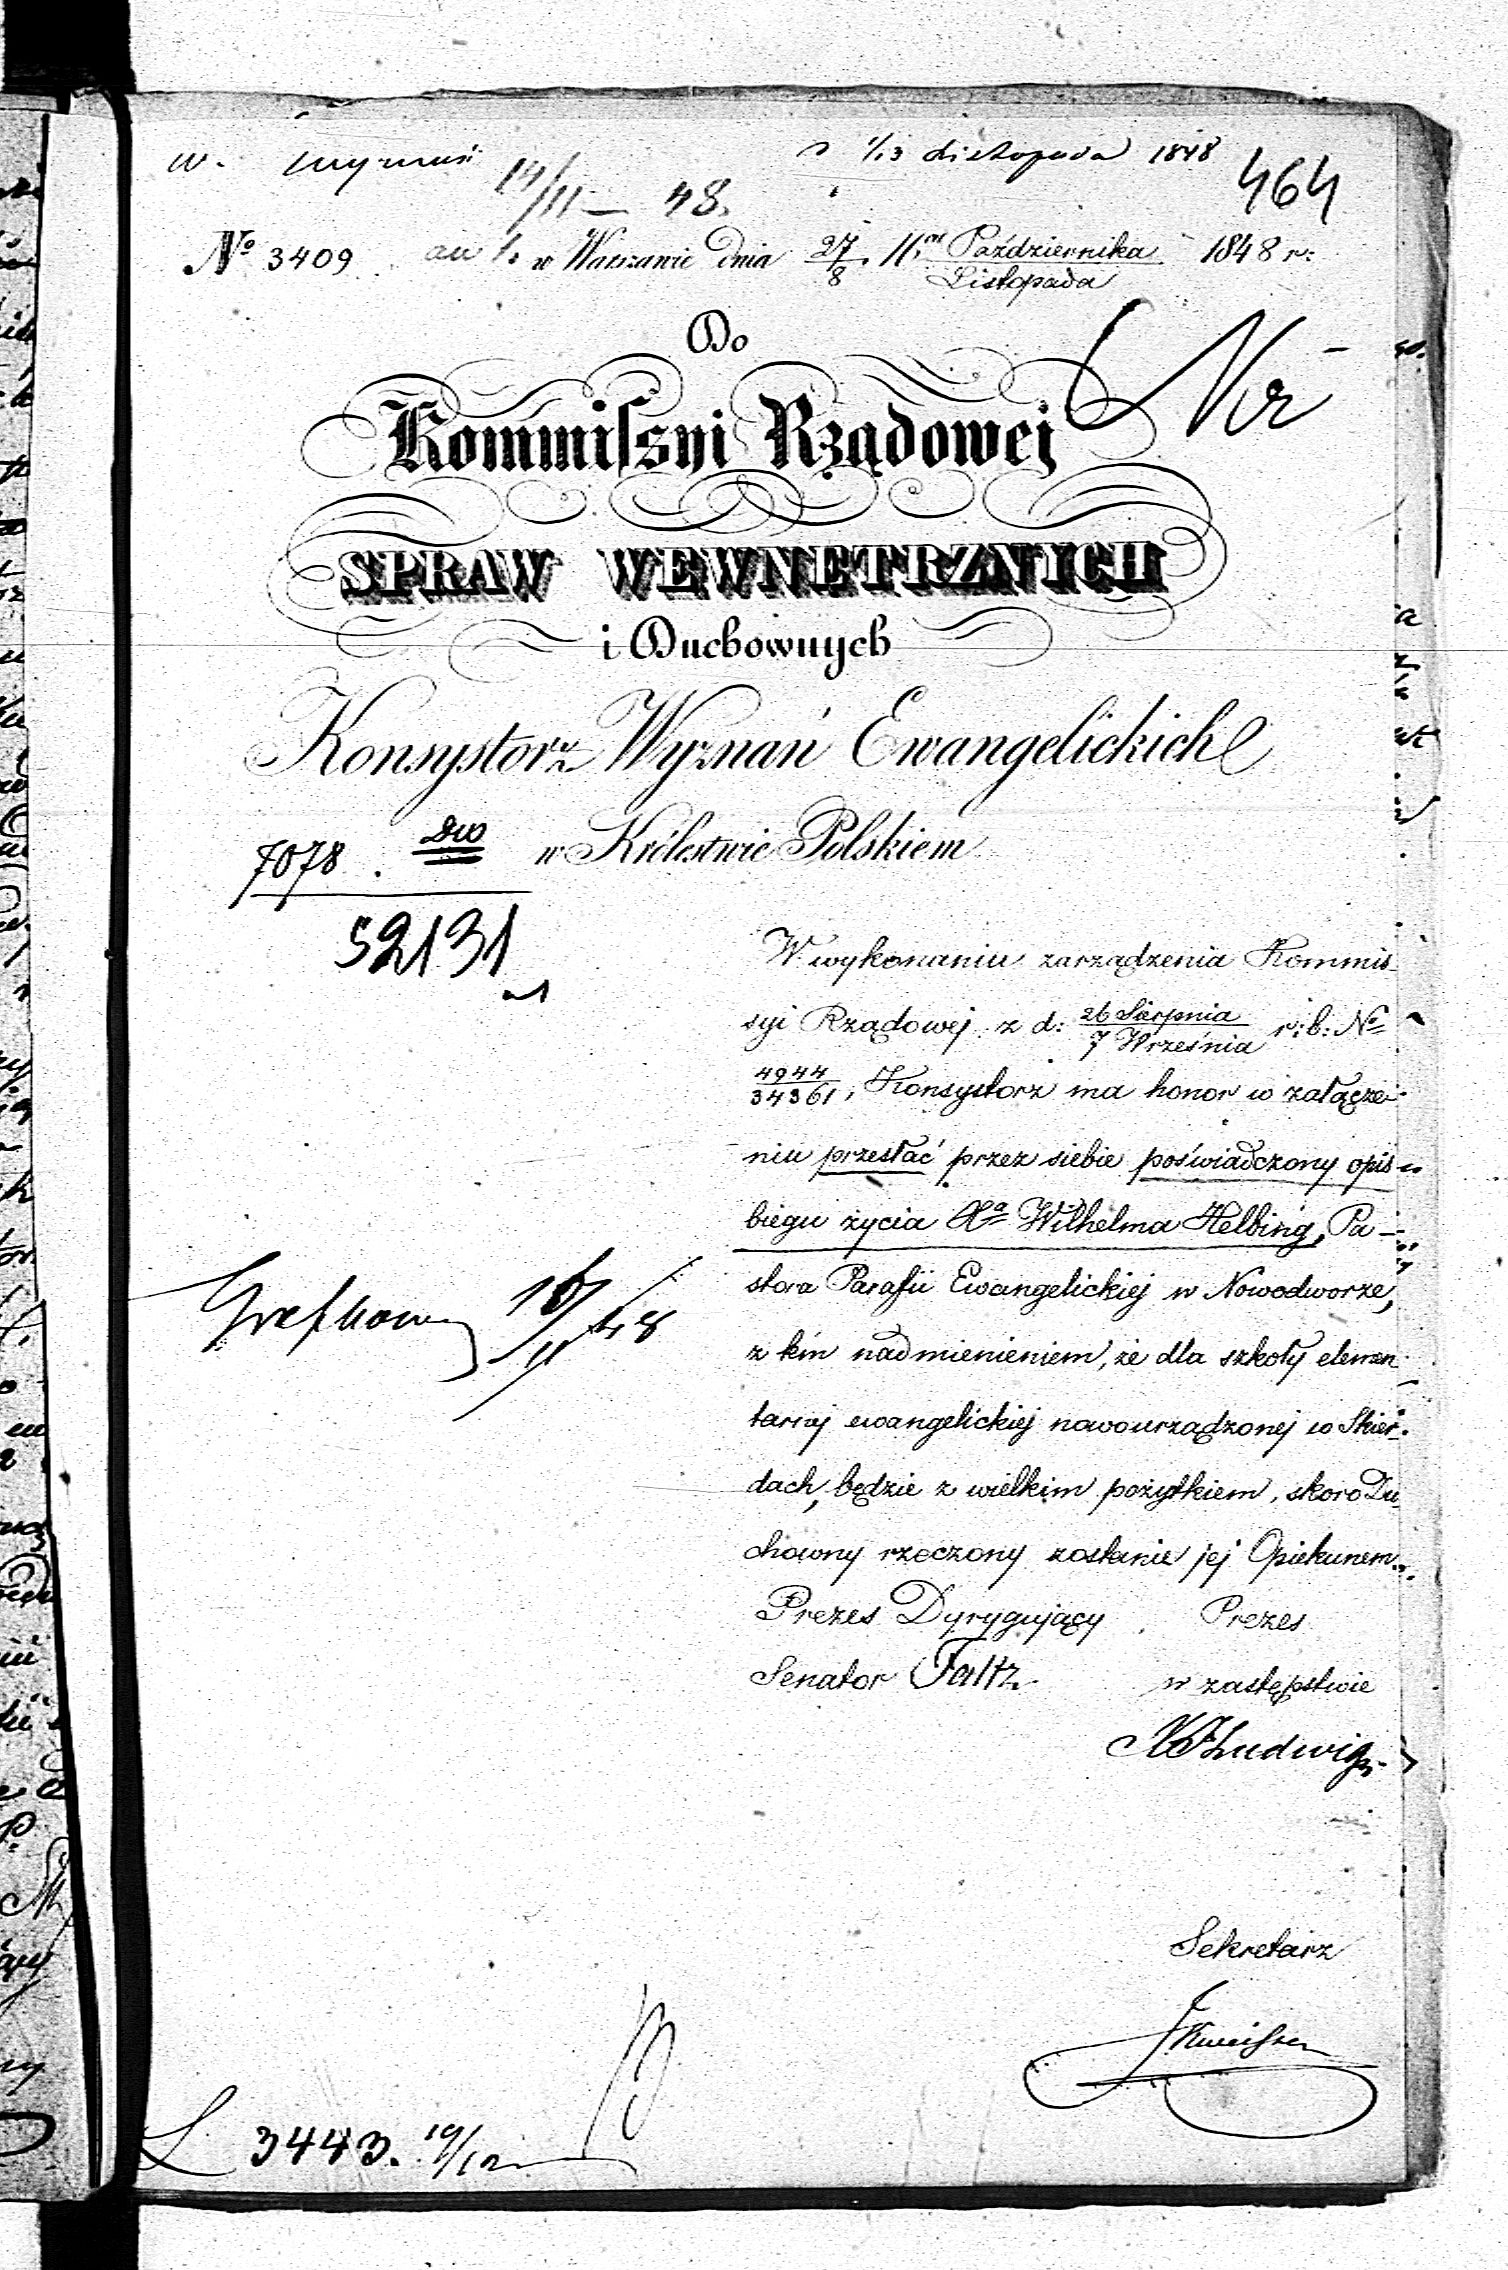 w. wyznań 1/13 Listopada 1848
14/11 — 48. 464
No 3409 w Warszawie dnia 27/8 Października/Listopada 1848 r:
Do
Kommissyi Rządowej
SPRAW WEWNĘTRZNYCH
i Duchownych
Konsystorz Wyznań Ewangelickich
w Królestwie Polskiem
7078.
52131
W wykonaniu zarządzenia Kommis-
syi Rządowej z d: 26 Sierpnia/7 Września r: b: No
4944/34361, Konsystorz ma honor w załącze-
niu przesłać przez siebie poświadczony opis
biegu życia Xa Wilhelma Helbing, Pa-
stora Parafii Ewangelickiej w Nowodworze,
z tém nadmienieniem, że dla szkoły elemen-
tarnej ewangelickiej nowourządzonej w Skier-
dach, będzie z wielkim pożytkiem, skoro Du-
chowny rzeczony zostanie jej Opiekunem.
Prezes Dyrygujący Prezes
Senator w zastępstwie
Ludwig
16/11 48
Sekretarz
3443. 19/12